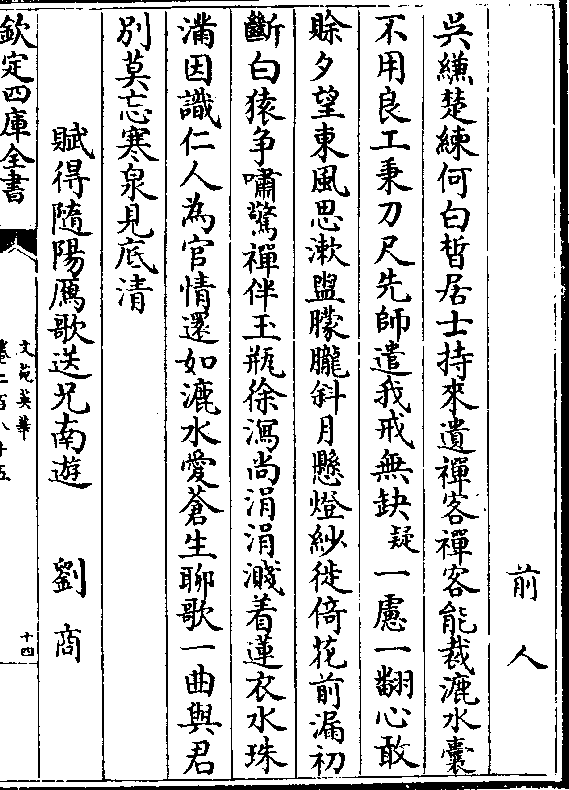 前人
吳縑楚練何白皙居士持來遺禪客禪客能裁漉水囊
不用良工秉刀尺先師遣我戒無缺疑一慮一翻心敢
賖夕望東風思漱盥朦朧斜月懸燈紗徙倚花前漏初
斷白猿争嘯驚禪伴玉瓶徐瀉尚涓涓濺着蓮衣水珠
滿因識仁人為官情還如漉水愛蒼生聊歌一曲與君
别莫忘寒泉見底清
賦得隨陽鴈歌送兄南遊 劉商
欽定四庫全書
文苑英華
卷二百八十五
十四